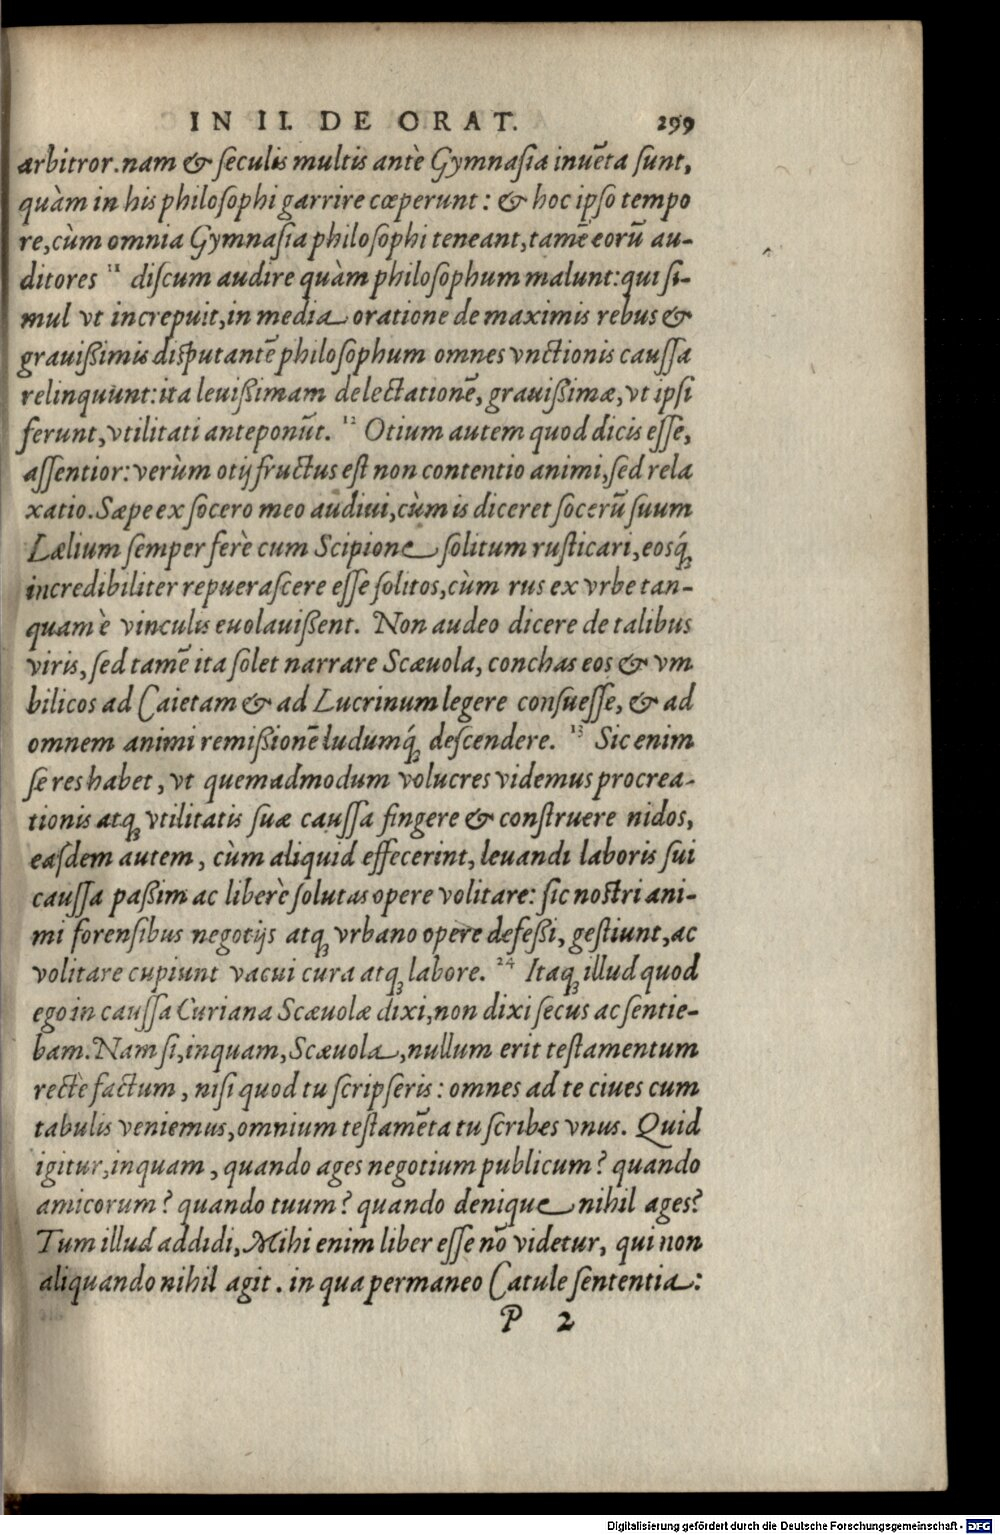 IN II. DE ORAT. 299
arbitror. nam & seculis multis antè Gymnasia inuẽta sunt,
quàm in his philosophi garrire cœperunt: & hoc ipso tempo
re, cùm omnia Gymnasia philosophi teneant, tamẽ eorũ au-
ditores 11 discum audire quàm philosophum malunt: qui si-
mul vt increpuit, in media oratione de maximis rebus &
grauißimis disputantẽ philosophum omnes vnctionis caussa
relinquunt: ita leuißimam delectationẽ, grauißimæ, vt ipsi
ferunt, vtilitati anteponũt. 12 Otium autem quod dicis esse,
assentior: verùm otij fructus est non contentio animi, sed rela
xatio. Sæpe ex socero meo audiui, cùm is diceret socerũ suum
Lælium semper ferè cum Scipione solitum rusticari, eosq́ꝫ
incredibiliter repuerascere esse solitos, cùm rus ex vrbe tan-
quam è vinculis euolauißent. Non audeo dicere de talibus
viris, sed tamẽ ita solet narrare Scæuola, conchas eos & vm
bilicos ad Caietam & ad Lucrinum legere consuesse, & ad
omnem animi remißionẽ ludumq́ꝫ descendere. 13 Sic enim
se res habet, vt quemadmodum volucres videmus procrea-
tionis atqꝫ vtilitatis suæ caussa fingere & construere nidos,
easdem autem, cùm aliquid effecerint, leuandi laboris sui
caussa paßim ac liberè solutas opere volitare: sic nostri ani-
mi forensibus negotijs atqꝫ vrbano opere defeßi, gestiunt, ac
volitare cupiunt vacui cura atqꝫ labore. 24 Itaqꝫ illud quod
ego in caussa Curiana Scæuolæ dixi, non dixi secus ac sentie-
bam. Nam si, inquam, Scæuola, nullum erit testamentum
rectè factum, nisi quod tu scripseris: omnes ad te ciues cum
tabulis veniemus, omnium testamẽta tu scribes vnus. Quid
igitur, inquam, quando ages negotium publicum? quando
amicorum? quando tuum? quando denique nihil ages?
Tum illud addidi, Mihi enim liber esse nõ videtur, qui non
aliquando nihil agit. in qua permaneo Catule sententia:
P 2
Digitalisierung gefördert durch die Deutsche Forschungsgemeinschaft - DFG